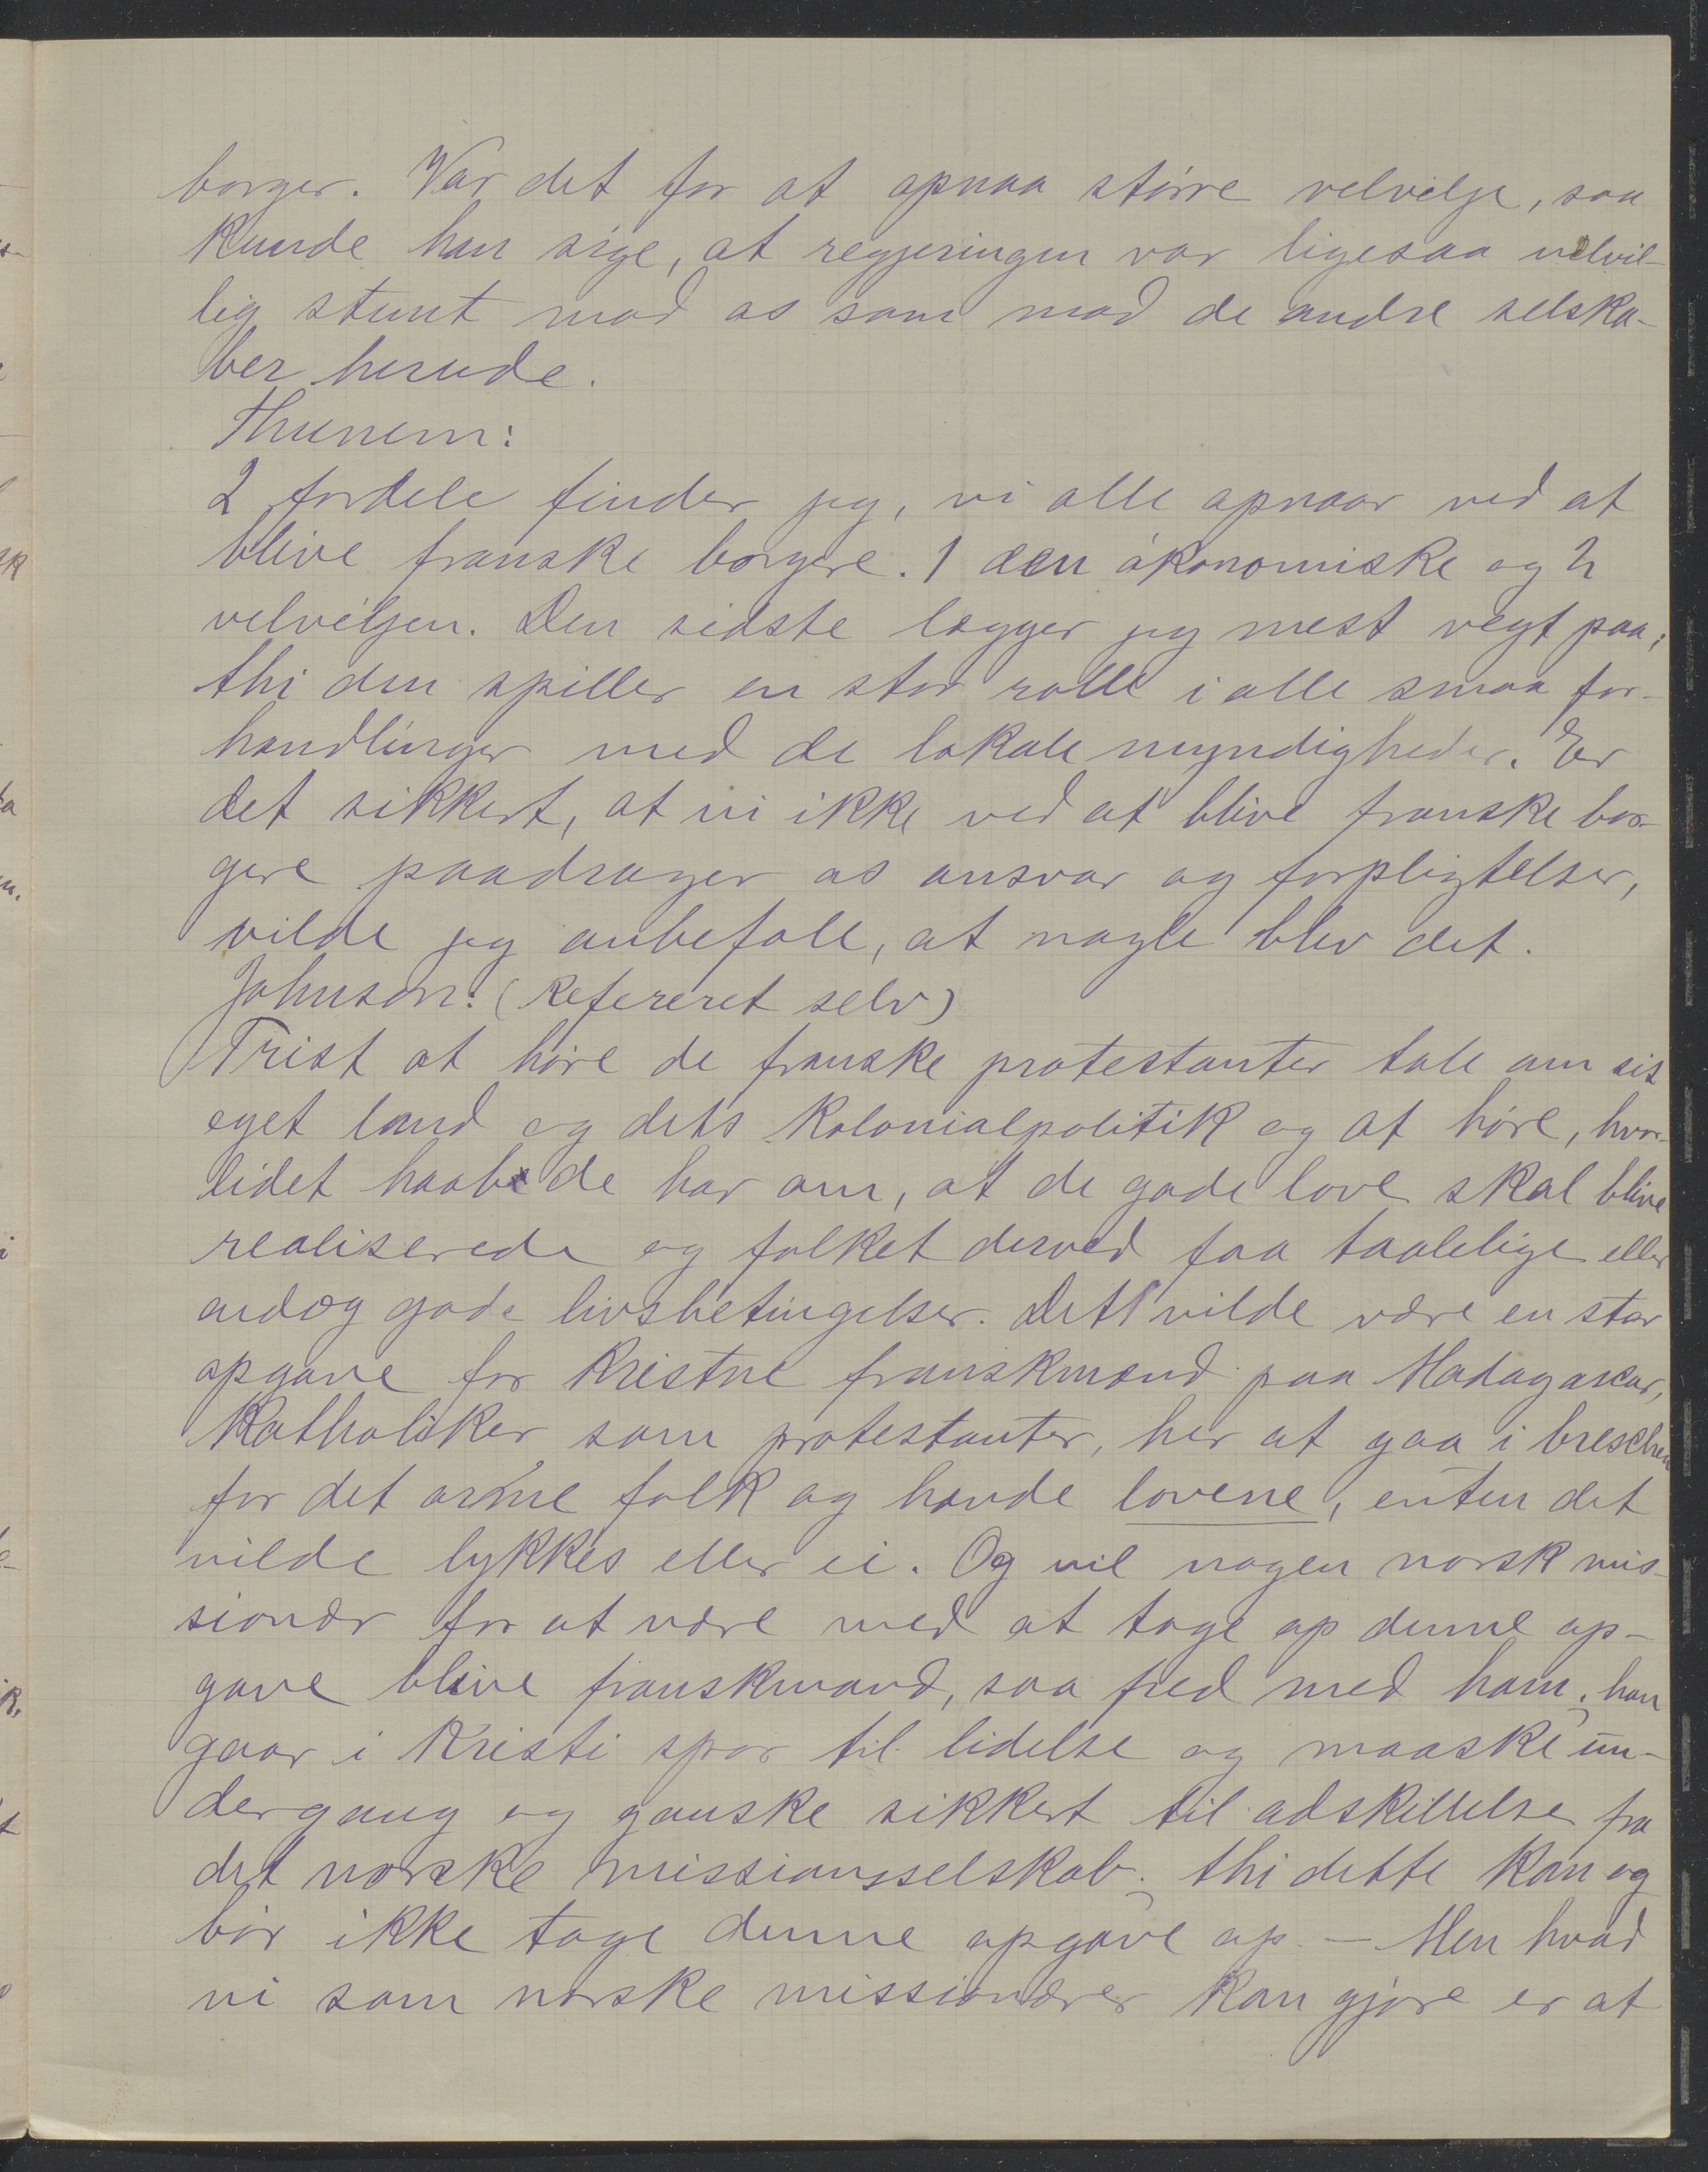 borger. Var det for at opnaa större velvilje, saa
kunde han sige, at regjeringen var ligesaa velvil-
lig stemt mod os som mod de andre selska-
ber herude.
Thunem:
2 fordele finder jeg, vi alle opnaar ved at
blive franske borgere. 1 den ökonomiske og 2
velviljen. Den sidste lægger jeg mest vegt paa;
thi den spiller en stor rolle i alle smaa for-
handlinger med de lokale myndigheder. Er
det sikkert, at vi ikke ved at blive franske bor-
gere paadrager os ansvar og forpligtelser,
vilde jeg anbefale, at nogle blev det.
Johnson: (Refereret selv)
Trist at höre de franske protestanter tale om sit
eget land og dets Kolonialpolitik og at höre, hvor
lidet haab de har om, at de gode love skal blive
realiserede og folket derved faa taalelige eller
endog gode livsbetingelser. Det vilde være en stor
opgave for kristne franskmænd paa Madagascar,
Katholiker som protestanter, her at gaa i breschen
for det arme folk og hævde lovene, enten det
vilde lykkes eller ei. Og vil nogen norsk mis-
sionær for at være med at tage op denne op-
gave blive franskmand, saa fred med ham; han
gaar i Kristi spor til lidelse og maaske un-
dergang og ganske sikkert til adskillelse fra
det norske missionsselskab; thi dette kan og
bör ikke tage denne opgave op. – Men hvad
vi som norske missionærer kan gjöre er at